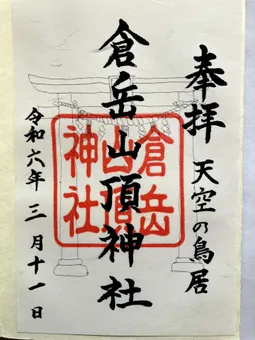 奉拝 天空の鳥居
倉岳山頂神社
倉岳
山頂
神社
令和六年三月十一日